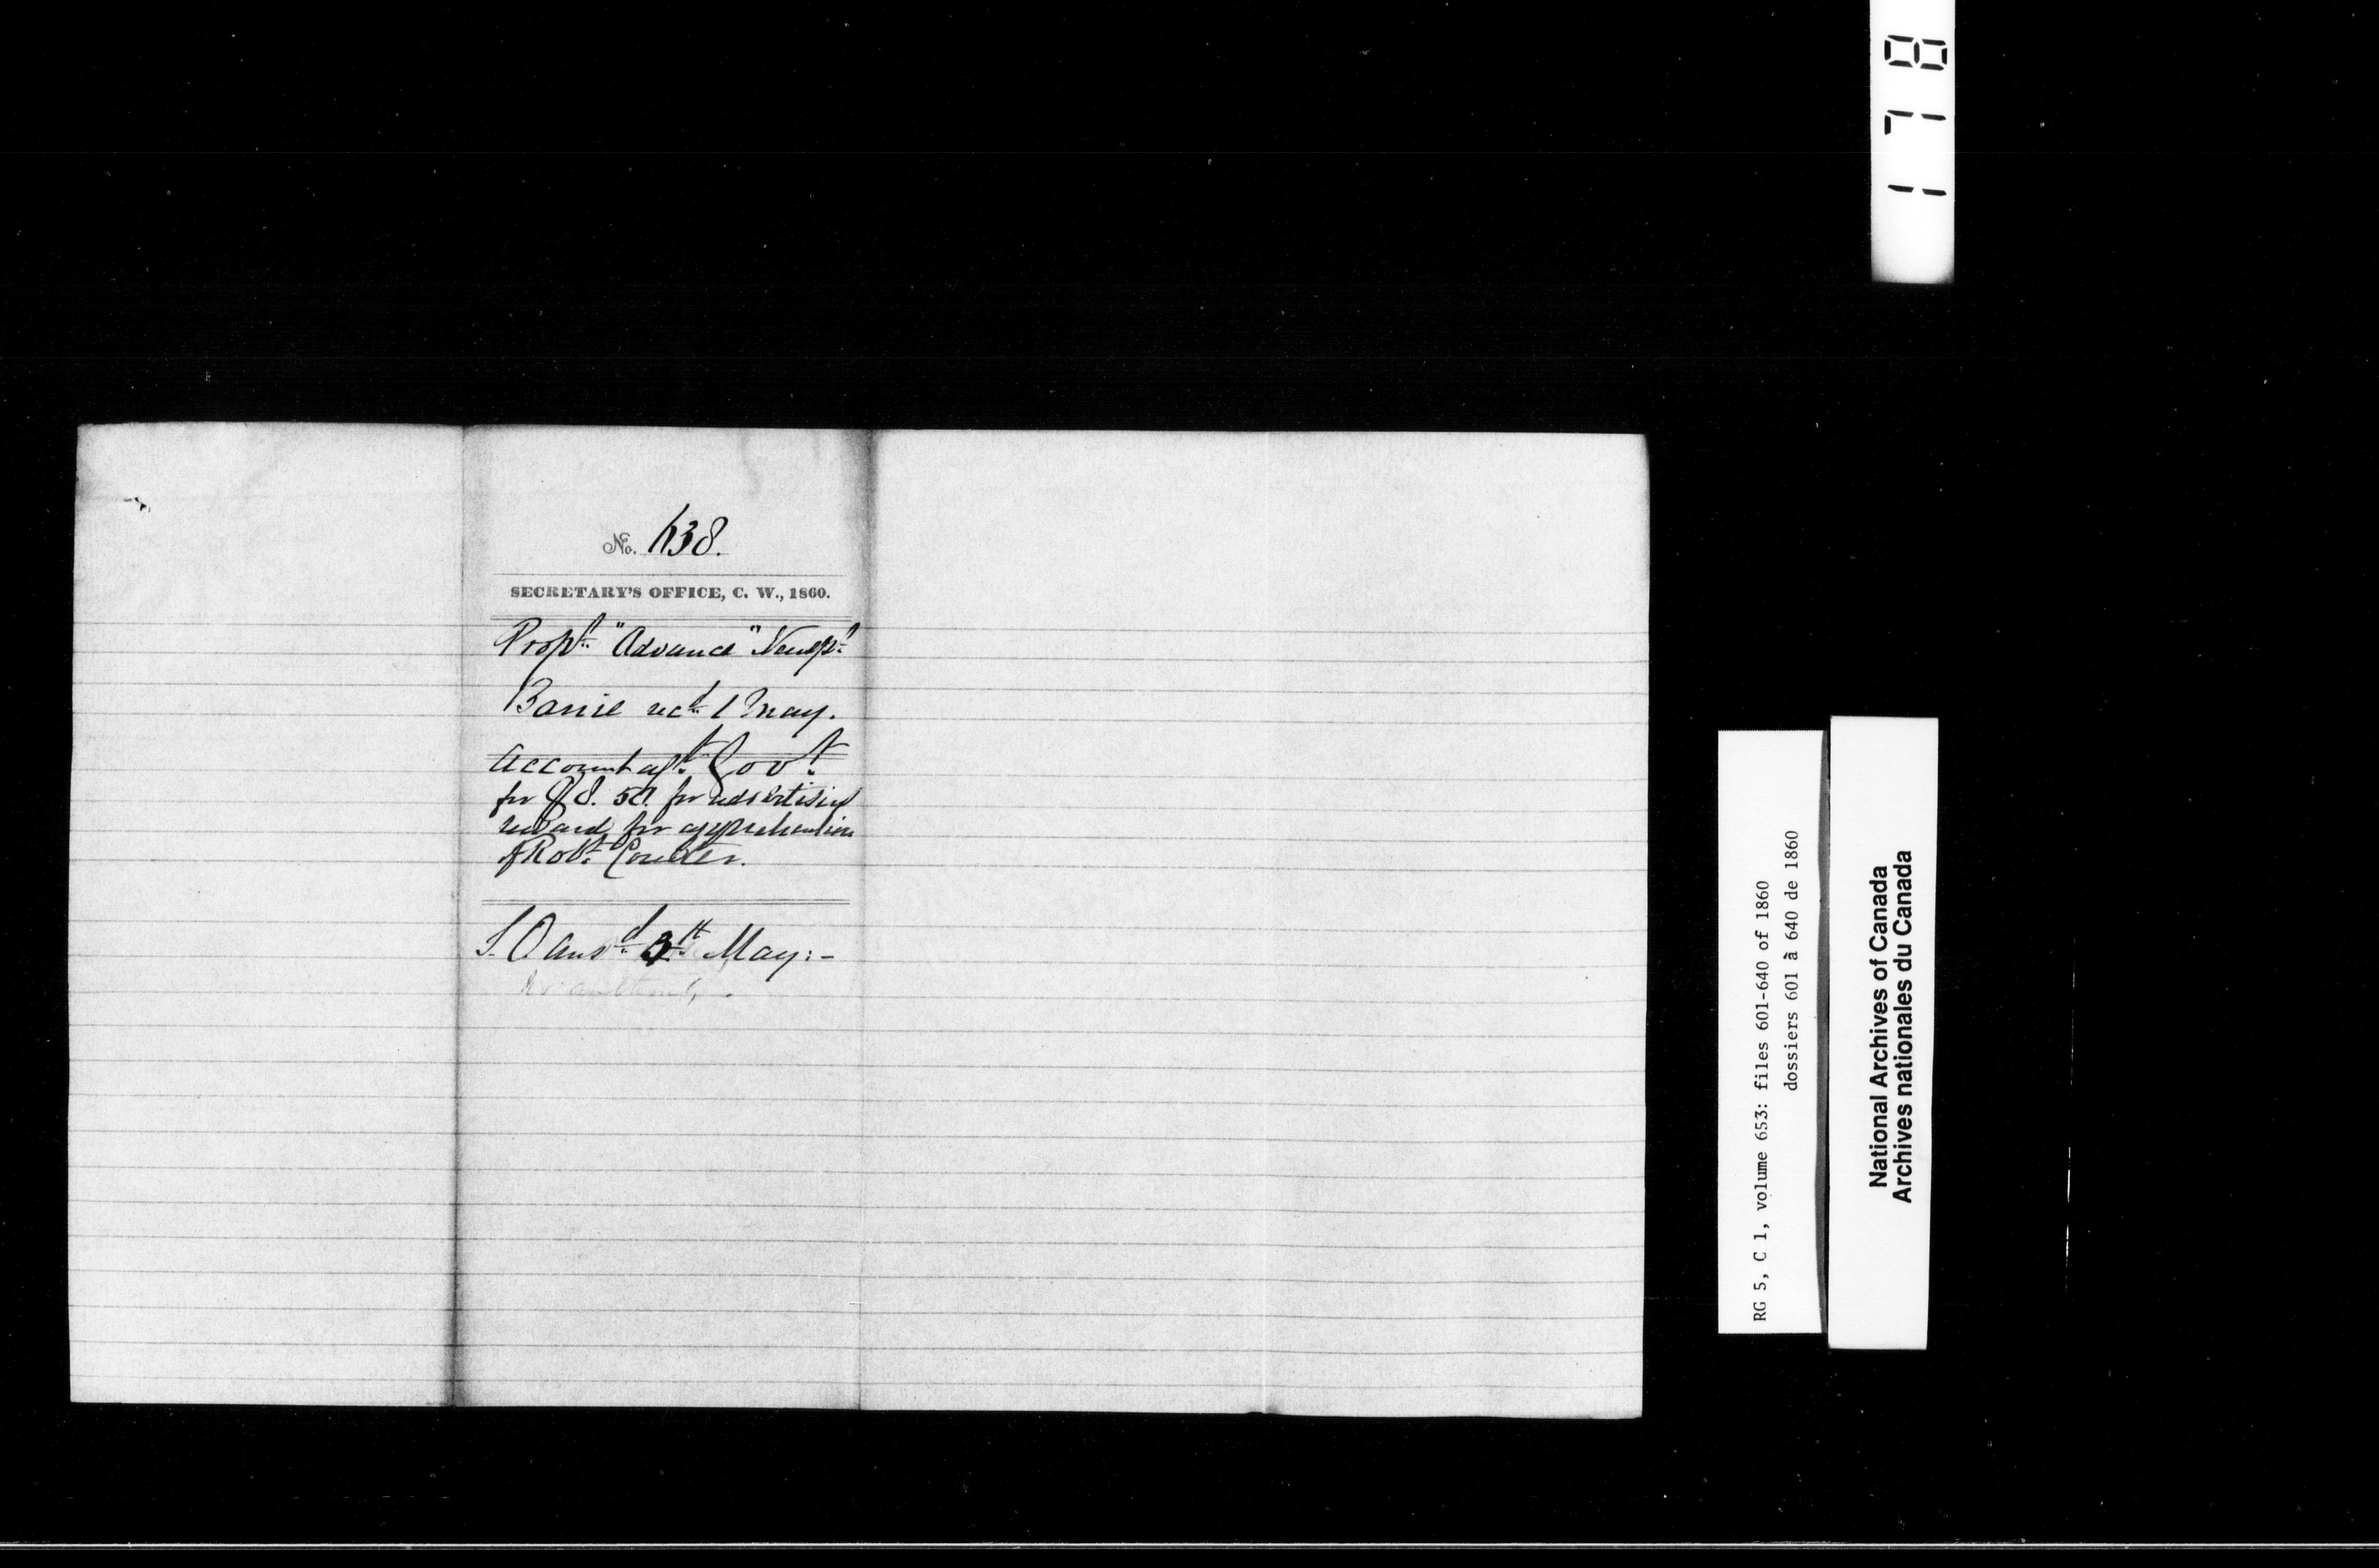 178
No. 638.
SECRETARY'S OFFICE, C. W., 1860.
Propr. "Advance" Newspr.
Barrie recd. 1 May.
Account agt. Govt.
for $8.50. for advertising
reward for apprehension
of Robt. Coulter.
S.O ansd. 3d May:-
RG 5, C 1, volume 653: files 601-640 of 1860
dossiers 601 à 640 de 1860
National Archives of Canada
Archives nationales du Canada